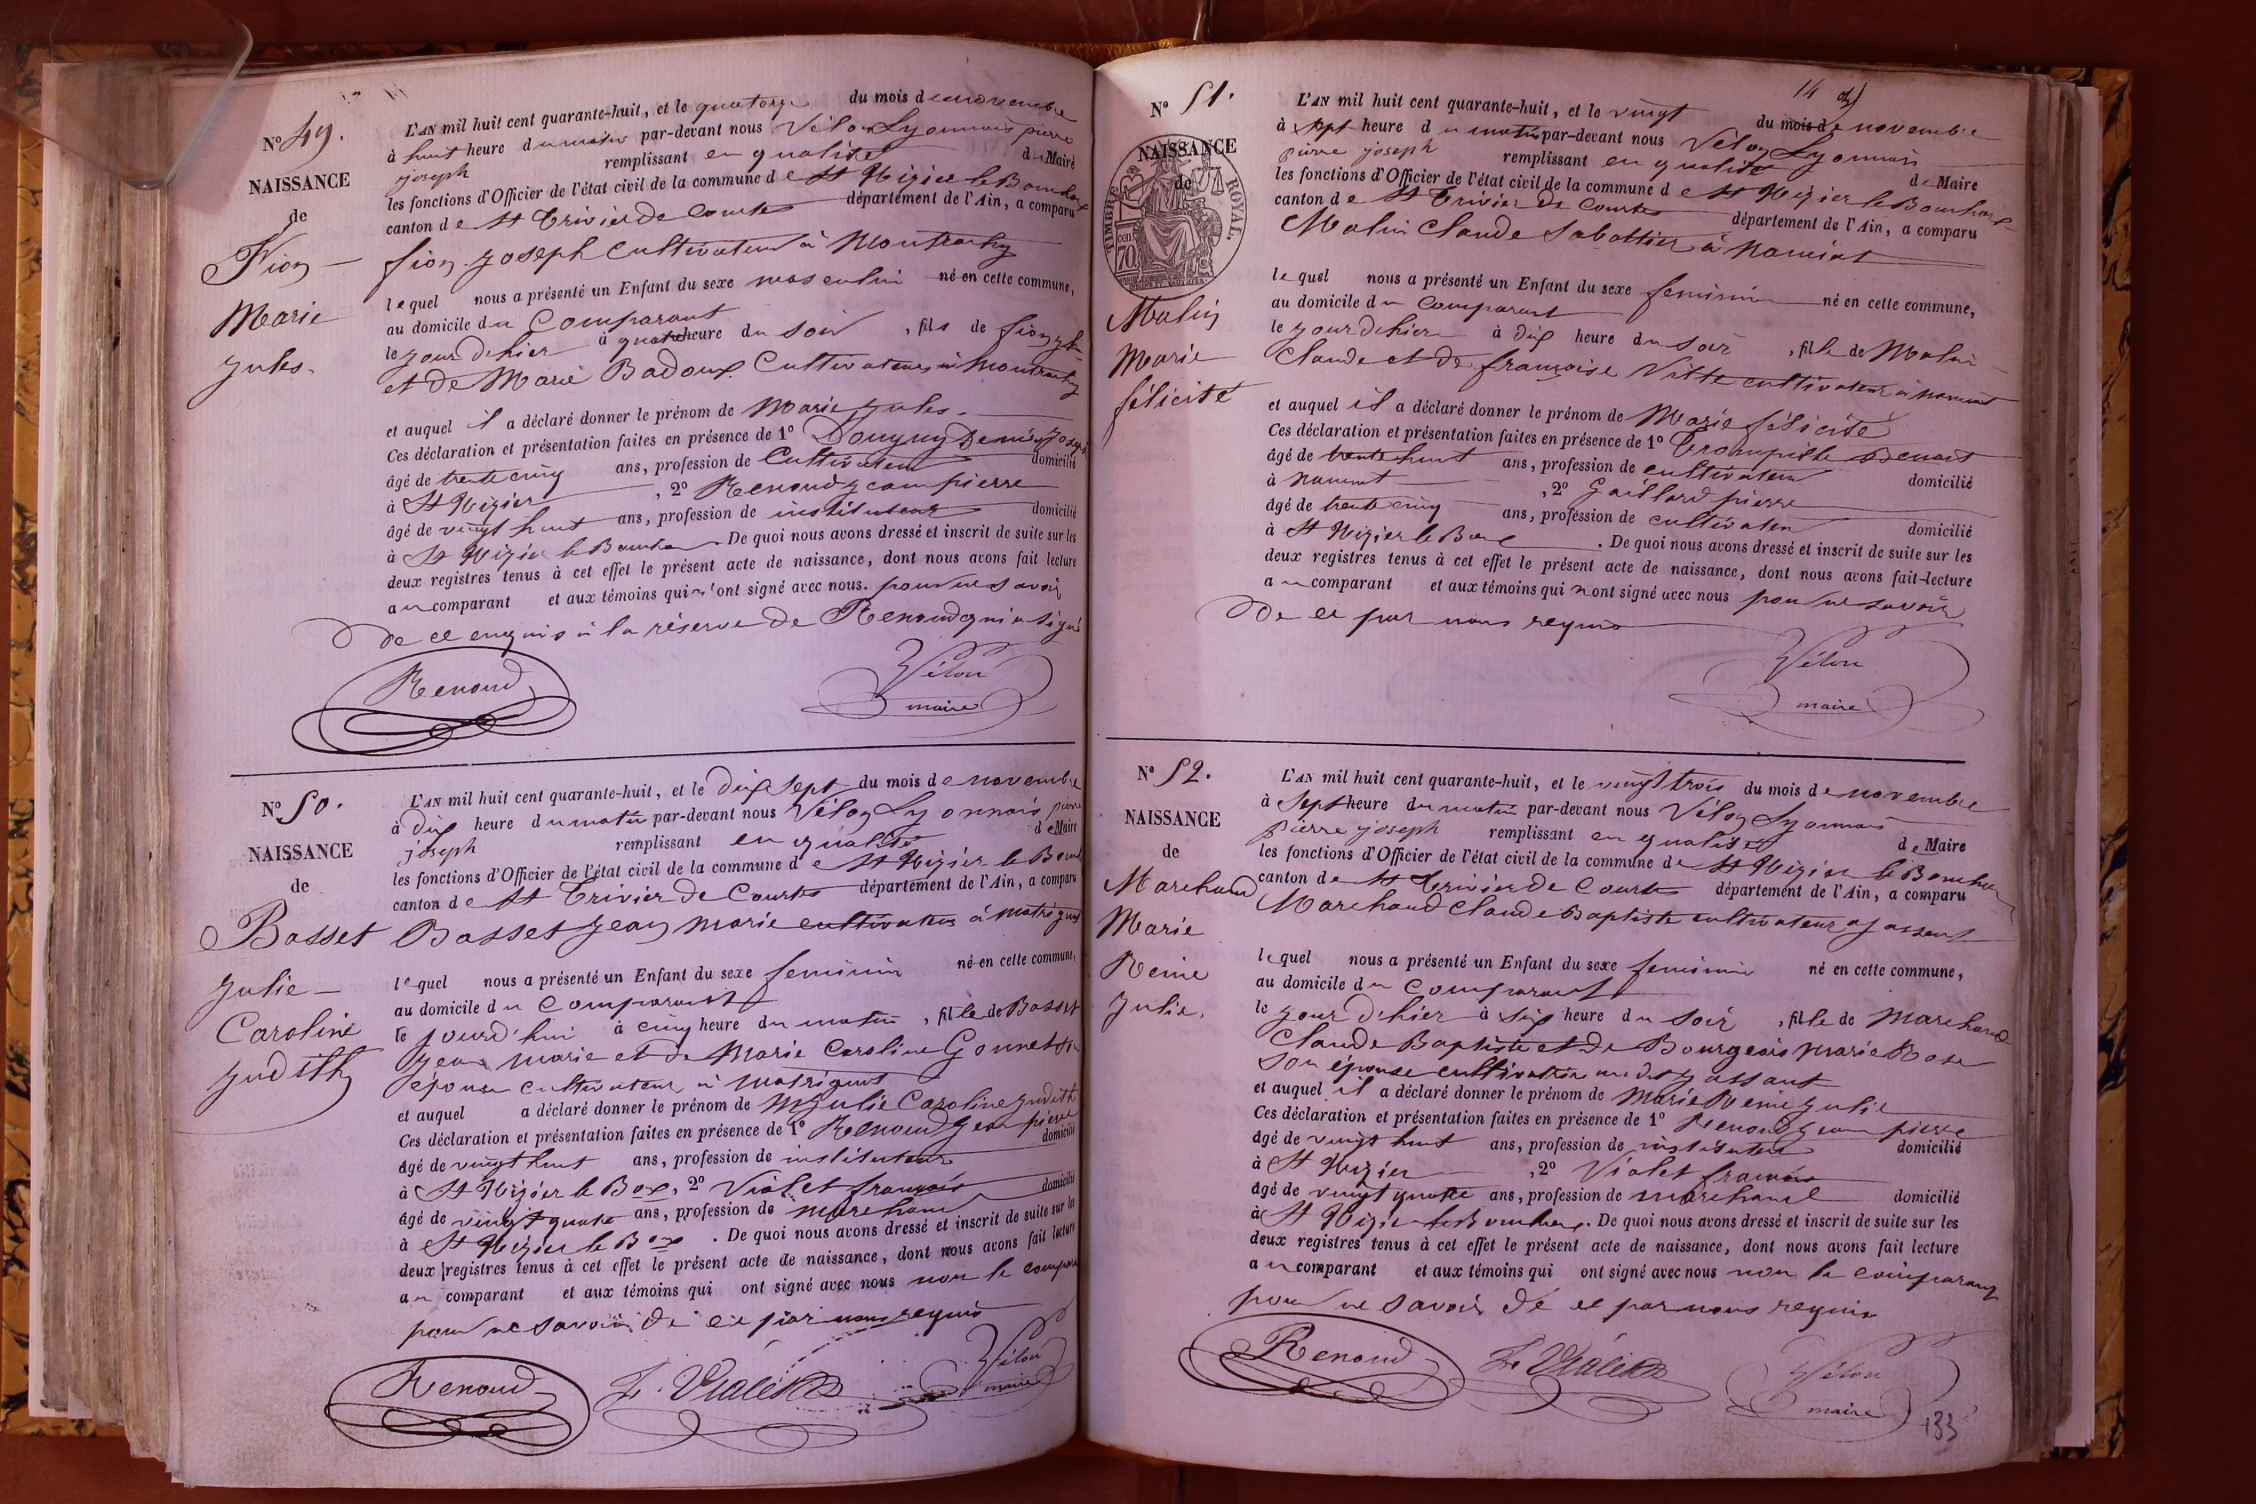 N° 49.
NAISSANCE
de
Fion
Marie
jules.
L'AN mil huit cent quarante-huit, et le quatorze du mois de novembre
à huit heure du matin par-devant nous Vélon Lyonnais pierre
joseph remplissant en qualité de Maire
les fonctions d'Officier de l'état civil de la commune de St Nizier le Bouchoux
canton de St Trivier de Courtes département de l'Ain, a comparu
fion joseph cultivateur à Montrachy
lequel nous a présenté un Enfant du sexe masculin né en cette commune,
au domicile du Comparant
le jour d'hier à quatre heure du soir, fils de fion jh
et de Marie Badoux Cultivateurs à Montrachy
et auquel il a déclaré donner le prénom de Marie jules.
Ces déclaration et présentation faites en présence de 1° Joseph
âgé de trente cinq ans, profession de Cultivateur domicilié
à St Nizier, 2° Renoud jean pierre
âgé de vingt huit ans, profession de instituteur domicilié
à St Nizier le Boucho. De quoi nous avons dressé et inscrit de suite sur les
deux registres tenus à cet effet le présent acte de naissance, dont nous avons fait lecture
au comparant et aux témoins qui n'ont signé avec nous. pour ne savoir
de ce enquis à la réserve de Renoud qui a signé
Renoud Vélon
maire
N° 50.
NAISSANCE
de
Basset
Julie
Caroline
judith
L'AN mil huit cent quarante-huit, et le dix sept du mois de novembre
à dix heure du matin par-devant nous Vélon Lyonnais pierre
joseph remplissant en qualité de Maire
les fonctions d'Officier de l'état civil de la commune de St Nizier le Bouch
canton de St Trivier de Courtes département de l'Ain, a comparu
Basset jean marie cultivateur à Matrignat
lequel nous a présenté un Enfant du sexe feminin né en cette commune,
au domicile du Comparant
le jourd'hui à cinq heure du matin, fille de Basset
jean marie et de Marie Caroline Gonnet son
épouse cultivateur à matrignat
et auquel a déclaré donner le prénom de julie Caroline judith
Ces déclaration et présentation faites en présence de 1° Renoud jean pierre
âgé de vingt huit ans, profession de instituteur domicilié
à St Nizier le Box, 2° Violet francois
âgé de vingt quatre ans, profession de marchand domicilié
à St Nizier le Box. De quoi nous avons dressé et inscrit de suite sur les
deux registres tenus à cet effet le présent acte de naissance, dont nous avons fait lecture
au comparant et aux témoins qui ont signé avec nous non le compara
pour ne savoir de ce par nous requis
Renoud Vélon
maire
14
N° 51.
NAISSANCE
de
TIMBRE ROYAL.
70
cen
Malin
Marie
félicité
L'AN mil huit cent quarante-huit, et le vingt du mois de novembre
à sept heure du matin par-devant nous Vélon Lyonnais
pierre joseph remplissant en qualité de Maire
les fonctions d'Officier de l'état civil de la commune de St Nizier le Bouchoux
canton de St Trivier de Courtes département de l'Ain, a comparu
Malin Claude Sabottier à
lequel nous a présenté un Enfant du sexe feminin né en cette commune,
au domicile du Comparant
le jour d'hier à dix heure du soir, fille de Malin
Claude et de françoise Vitte cultivateur à
et auquel il a déclaré donner le prénom de Marie félicité
Ces déclaration et présentation faites en présence de 1° Benoit
âgé de trente huit ans, profession de cultivateur domicilié
à, 2° Gaillard pierre
âgé de trente cinq ans, profession de cultivateur domicilié
à St Nizier le Box. De quoi nous avons dressé et inscrit de suite sur les
deux registres tenus à cet effet le présent acte de naissance, dont nous avons fait lecture
au comparant et aux témoins qui n'ont signé avec nous pour ne savoir
de ce par nous requis
Vélon
maire
N° 52.
NAISSANCE
de
Marchand
Marie
Reine
Julie.
L'AN mil huit cent quarante-huit, et le vingt trois du mois de novembre
à Sept heure du matin par-devant nous Vélon Lyonnais
pierre joseph remplissant en qualité de Maire
les fonctions d'Officier de l'état civil de la commune de St Nizier le Bouchoux
canton de St Trivier de Courtes département de l'Ain, a comparu
Marchand Claude Baptiste cultivateur
lequel nous a présenté un Enfant du sexe feminin né en cette commune,
au domicile du Comparant
le jour d'hier à six heure du soir, fille de Marchand
Claude Baptiste et de Bourgeois Marie Rose
son épouse cultivateur
et auquel il a déclaré donner le prénom de Marie Reine julie
Ces déclaration et présentation faites en présence de 1° Renoud jean pierre
âgé de vingt huit ans, profession de instituteur domicilié
à St Nizier, 2° Violet francois
âgé de vingt quatre ans, profession de marchand domicilié
à St Nizier le Bouchoux. De quoi nous avons dressé et inscrit de suite sur les
deux registres tenus à cet effet le présent acte de naissance, dont nous avons fait lecture
au comparant et aux témoins qui ont signé avec nous non le comparant
pour ne savoir de ce par nous requis
Renoud Vélon
maire
133